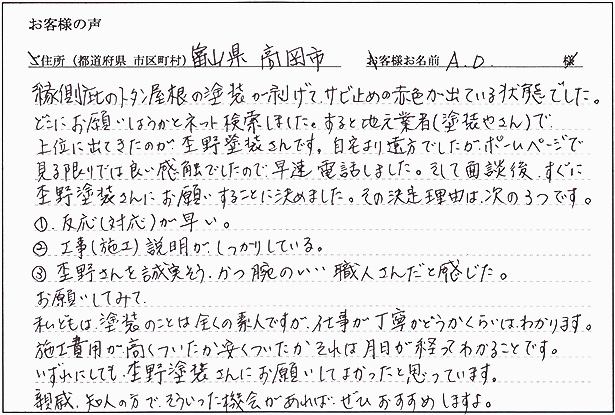 お客様の声
ご住所（都道府県 市区町村）富山県 高岡市 お客様お名前 A.O. 様
縁側庇のトタン屋根の塗装が剥げてサビ止めの赤色が出ている状態でした。
どこにお願いしようかとネット検索しました。すると地元業者(塗装やさん)で
上位に出てきたのが杢野塗装さんです。自宅より遠方でしたがホームページで
見る限りでは良い感触でしたので早速電話しました。そして面談後、すぐに
杢野塗装さんにお願いすることに決めました。その決定理由は、次の3つです。
①.反応(対応)が早い。
② 工事(施工)説明が、しっかりしている。
③ 杢野さんを誠実そう、かつ腕のいい職人さんだと感じた。
お願いしてみて、
私どもは、塗装のことは全くの素人ですが、仕事が丁寧かどうかくらいは、わかります。
施工費用が高くついたか安くついたか、それは月日が経ってわかることです。
いずれにしても、杢野塗装さんにお願いしてよかったと思っています。
親戚、知人の方で、そういった機会があれば、ぜひおすすめしますよ。